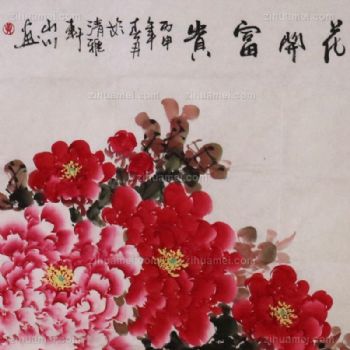 花開富貴
丙申
年春月
於
清雅
軒
山川
画
zihuamei.com
zihuamei.com
zihuamei.com
zihuamei.com
zihuamei.com
zihuamei.com
zihuamei.com
zihuamei.com